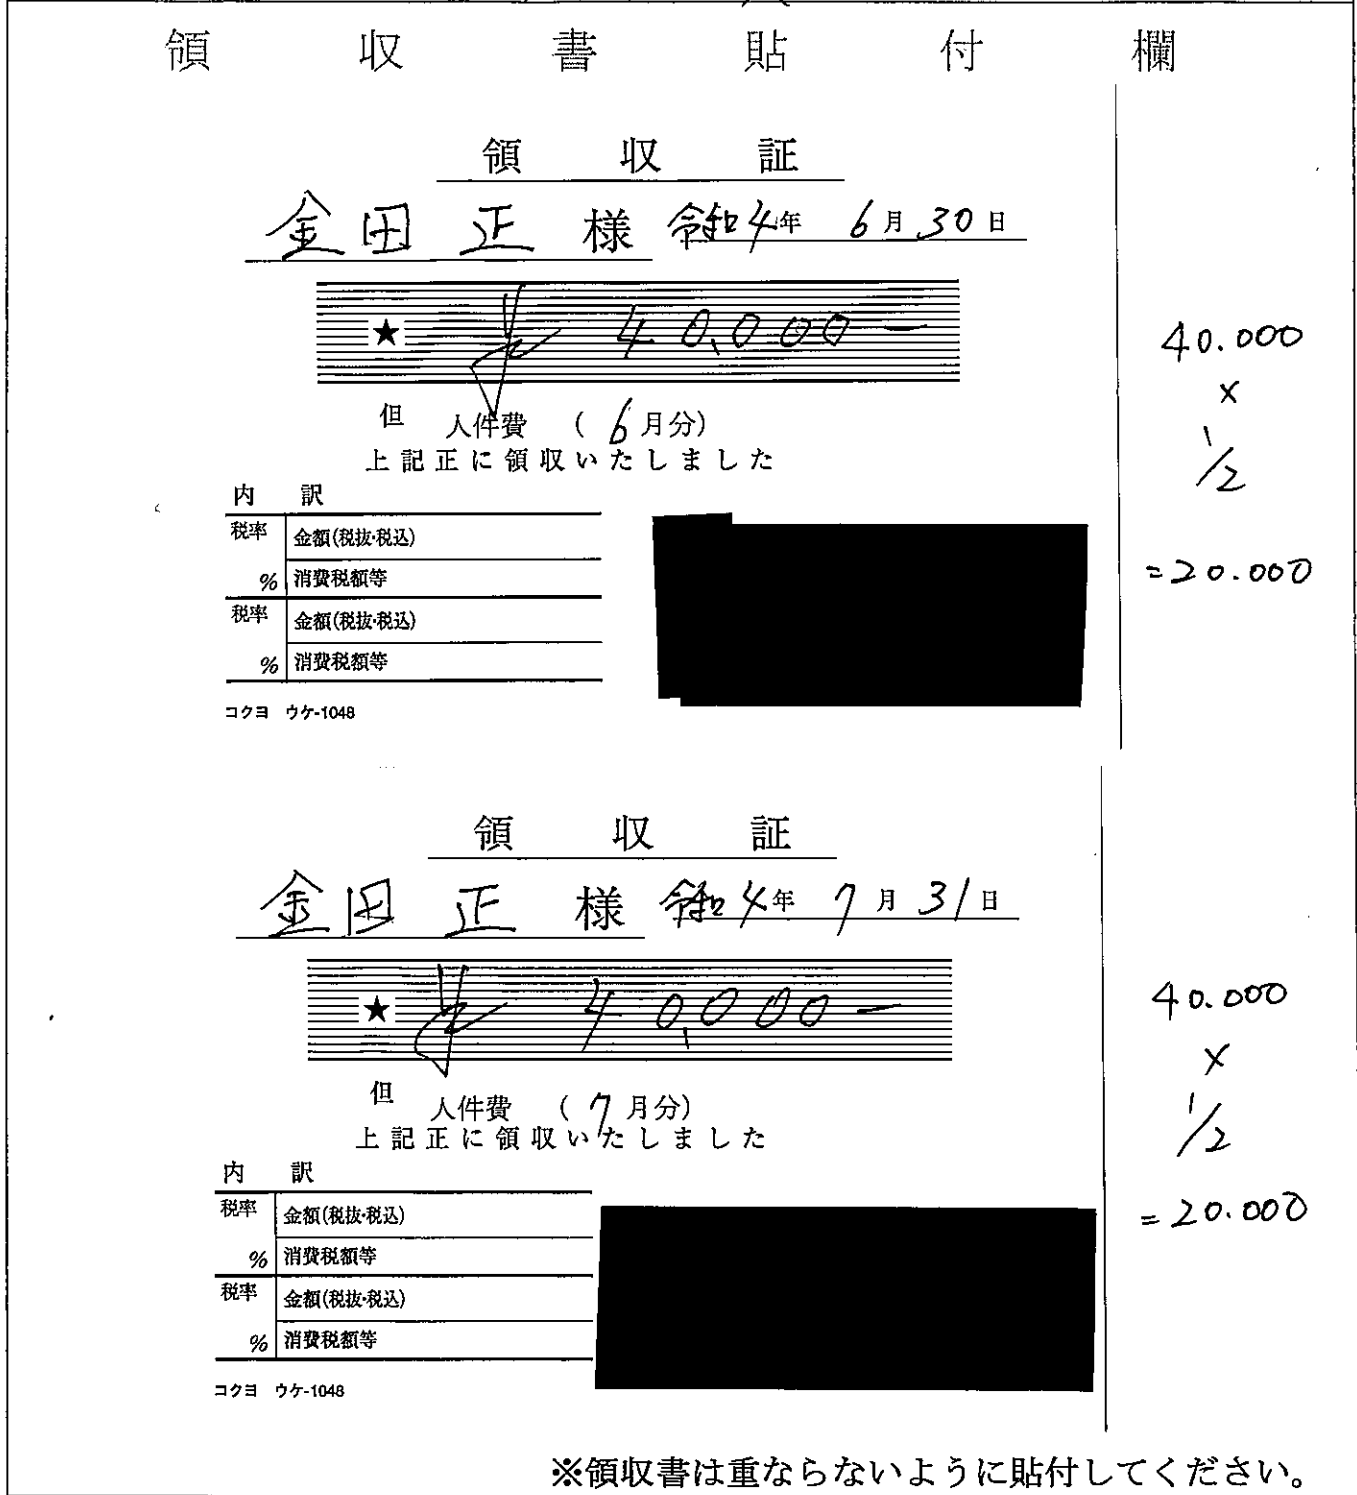 領収書貼付欄
領収証
金田正様 令和4年6月30日
★ ¥40,000-
但 人件費 (6月分)
上記正に領収いたしました
内訳
税率 金額(税抜・税込)
% 消費税額等
税率 金額(税抜・税込)
% 消費税額等
コクヨ ウケ-1048
40.000
×
1/2
=20.000
領収証
金田正様 令和4年7月31日
★ ¥40,000-
但 人件費 (7月分)
上記正に領収いたしました
内訳
税率 金額(税抜・税込)
% 消費税額等
税率 金額(税抜・税込)
% 消費税額等
コクヨ ウケ-1048
40.000
×
1/2
=20.000
※領収書は重ならないように貼付してください。